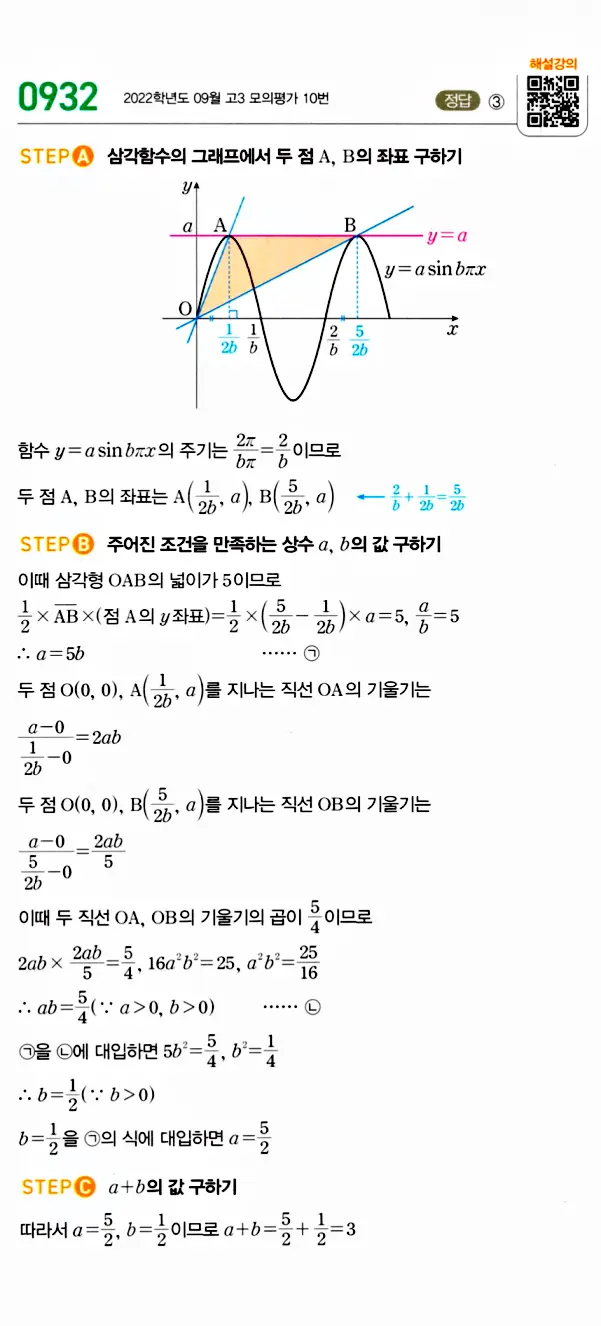 해설강의
0932 2022학년도 09월 고3 모의평가 10번 정답 ③
STEP A 삼각함수의 그래프에서 두 점 A, B의 좌표 구하기
y
a A B y=a
y=a sin bπx
O 1/2b 1/b 2/b 5/2b x
함수 y=a sin bπx의 주기는 2π/bπ=2/b이므로
두 점 A, B의 좌표는 A(1/2b, a), B(5/2b, a) ← 2/b+1/2b=5/2b
STEP B 주어진 조건을 만족하는 상수 a, b의 값 구하기
이때 삼각형 OAB의 넓이가 5이므로
1/2×AB×(점 A의 y좌표)=1/2×(5/2b−1/2b)×a=5, a/b=5
∴ a=5b …… ㉠
두 점 O(0, 0), A(1/2b, a)를 지나는 직선 OA의 기울기는
(a−0)/(1/2b−0)=2ab
두 점 O(0, 0), B(5/2b, a)를 지나는 직선 OB의 기울기는
(a−0)/(5/2b−0)=2ab/5
이때 두 직선 OA, OB의 기울기의 곱이 5/4이므로
2ab×2ab/5=5/4, 16a²b²=25, a²b²=25/16
∴ ab=5/4(∵ a>0, b>0) …… ㉡
㉠을 ㉡에 대입하면 5b²=5/4, b²=1/4
∴ b=1/2(∵ b>0)
b=1/2을 ㉠의 식에 대입하면 a=5/2
STEP C a+b의 값 구하기
따라서 a=5/2, b=1/2이므로 a+b=5/2+1/2=3